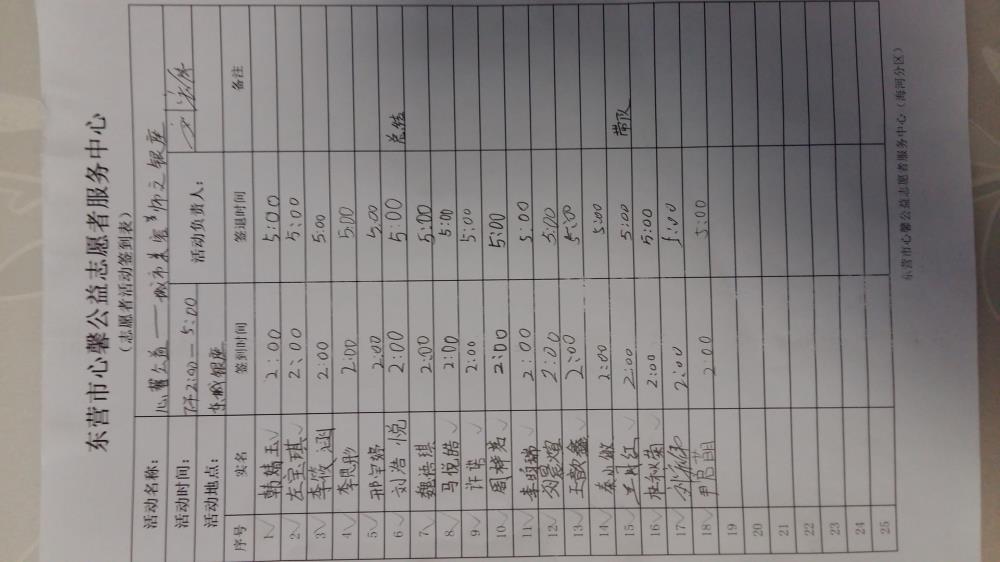 东营市心馨公益志愿者服务中心
（志愿者活动签到表）
活动名称： 心馨公益——城市美容师之银座
活动时间： 下午2:00—5:00
活动地点： 东城银座 活动负责人：
序号 实名 签到时间 签退时间 备注
1 韩婧玉 2:00 5:00
2 左宝琪 2:00 5:00
3 李筱涵 2:00 5:00
4 李思彤 2:00 5:00
5 邢宇婷 2:00 5:00
6 刘浩悦 2:00 5:00 总结
7 魏语琪 2:00 5:00
8 马悦皓 2:00 5:00
9 许诺 2:00 5:00
10 周梓茗 2:00 5:00
11 李明瑞 2:00 5:00
12 刘晨煊 2:00 5:00
13 王歆鑫 2:00 5:00
14 秦小敏 2:00 5:00
15 王树红 2:00 5:00 带队
16 2:00 5:00
17 2:00 5:00
18 2:00 5:00
19
20
21
22
23
24
25
东营市心馨公益志愿者服务中心（海河分区）